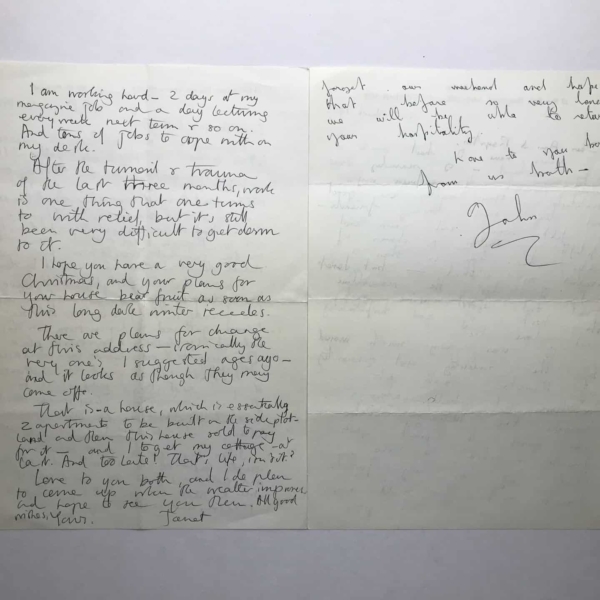 I am working hard – 2 days at my
magazine job and a day lecturing
every week next term & so on.
And tons of jobs to cope with on
my desk.
After the turmoil & trauma
of the last three months, work
is one thing that one turns
to with relief, but it's still
been very difficult to get down
to it.
I hope you have a very good
Christmas, and your plans for
your house bear fruit as soon as
this long dark winter recedes.
There are plans for change
at this address – ironically the
very one's I suggested ages ago –
and it looks as though they may
come off.
That is – a house, which is essentially
2 apartments to be built on the side plot –
land and then this house sold to pay
for it – and I to get my cottage – at
last. And too late! That's life, isn't it?
Love to you both, and I do plan
to come up when the weather improves
and hope to see you then. All good
wishes, Yours. Janet
forget our weekend and hope
that before so very long
we will be able to
your hospitality
Love to you
from us both –
John